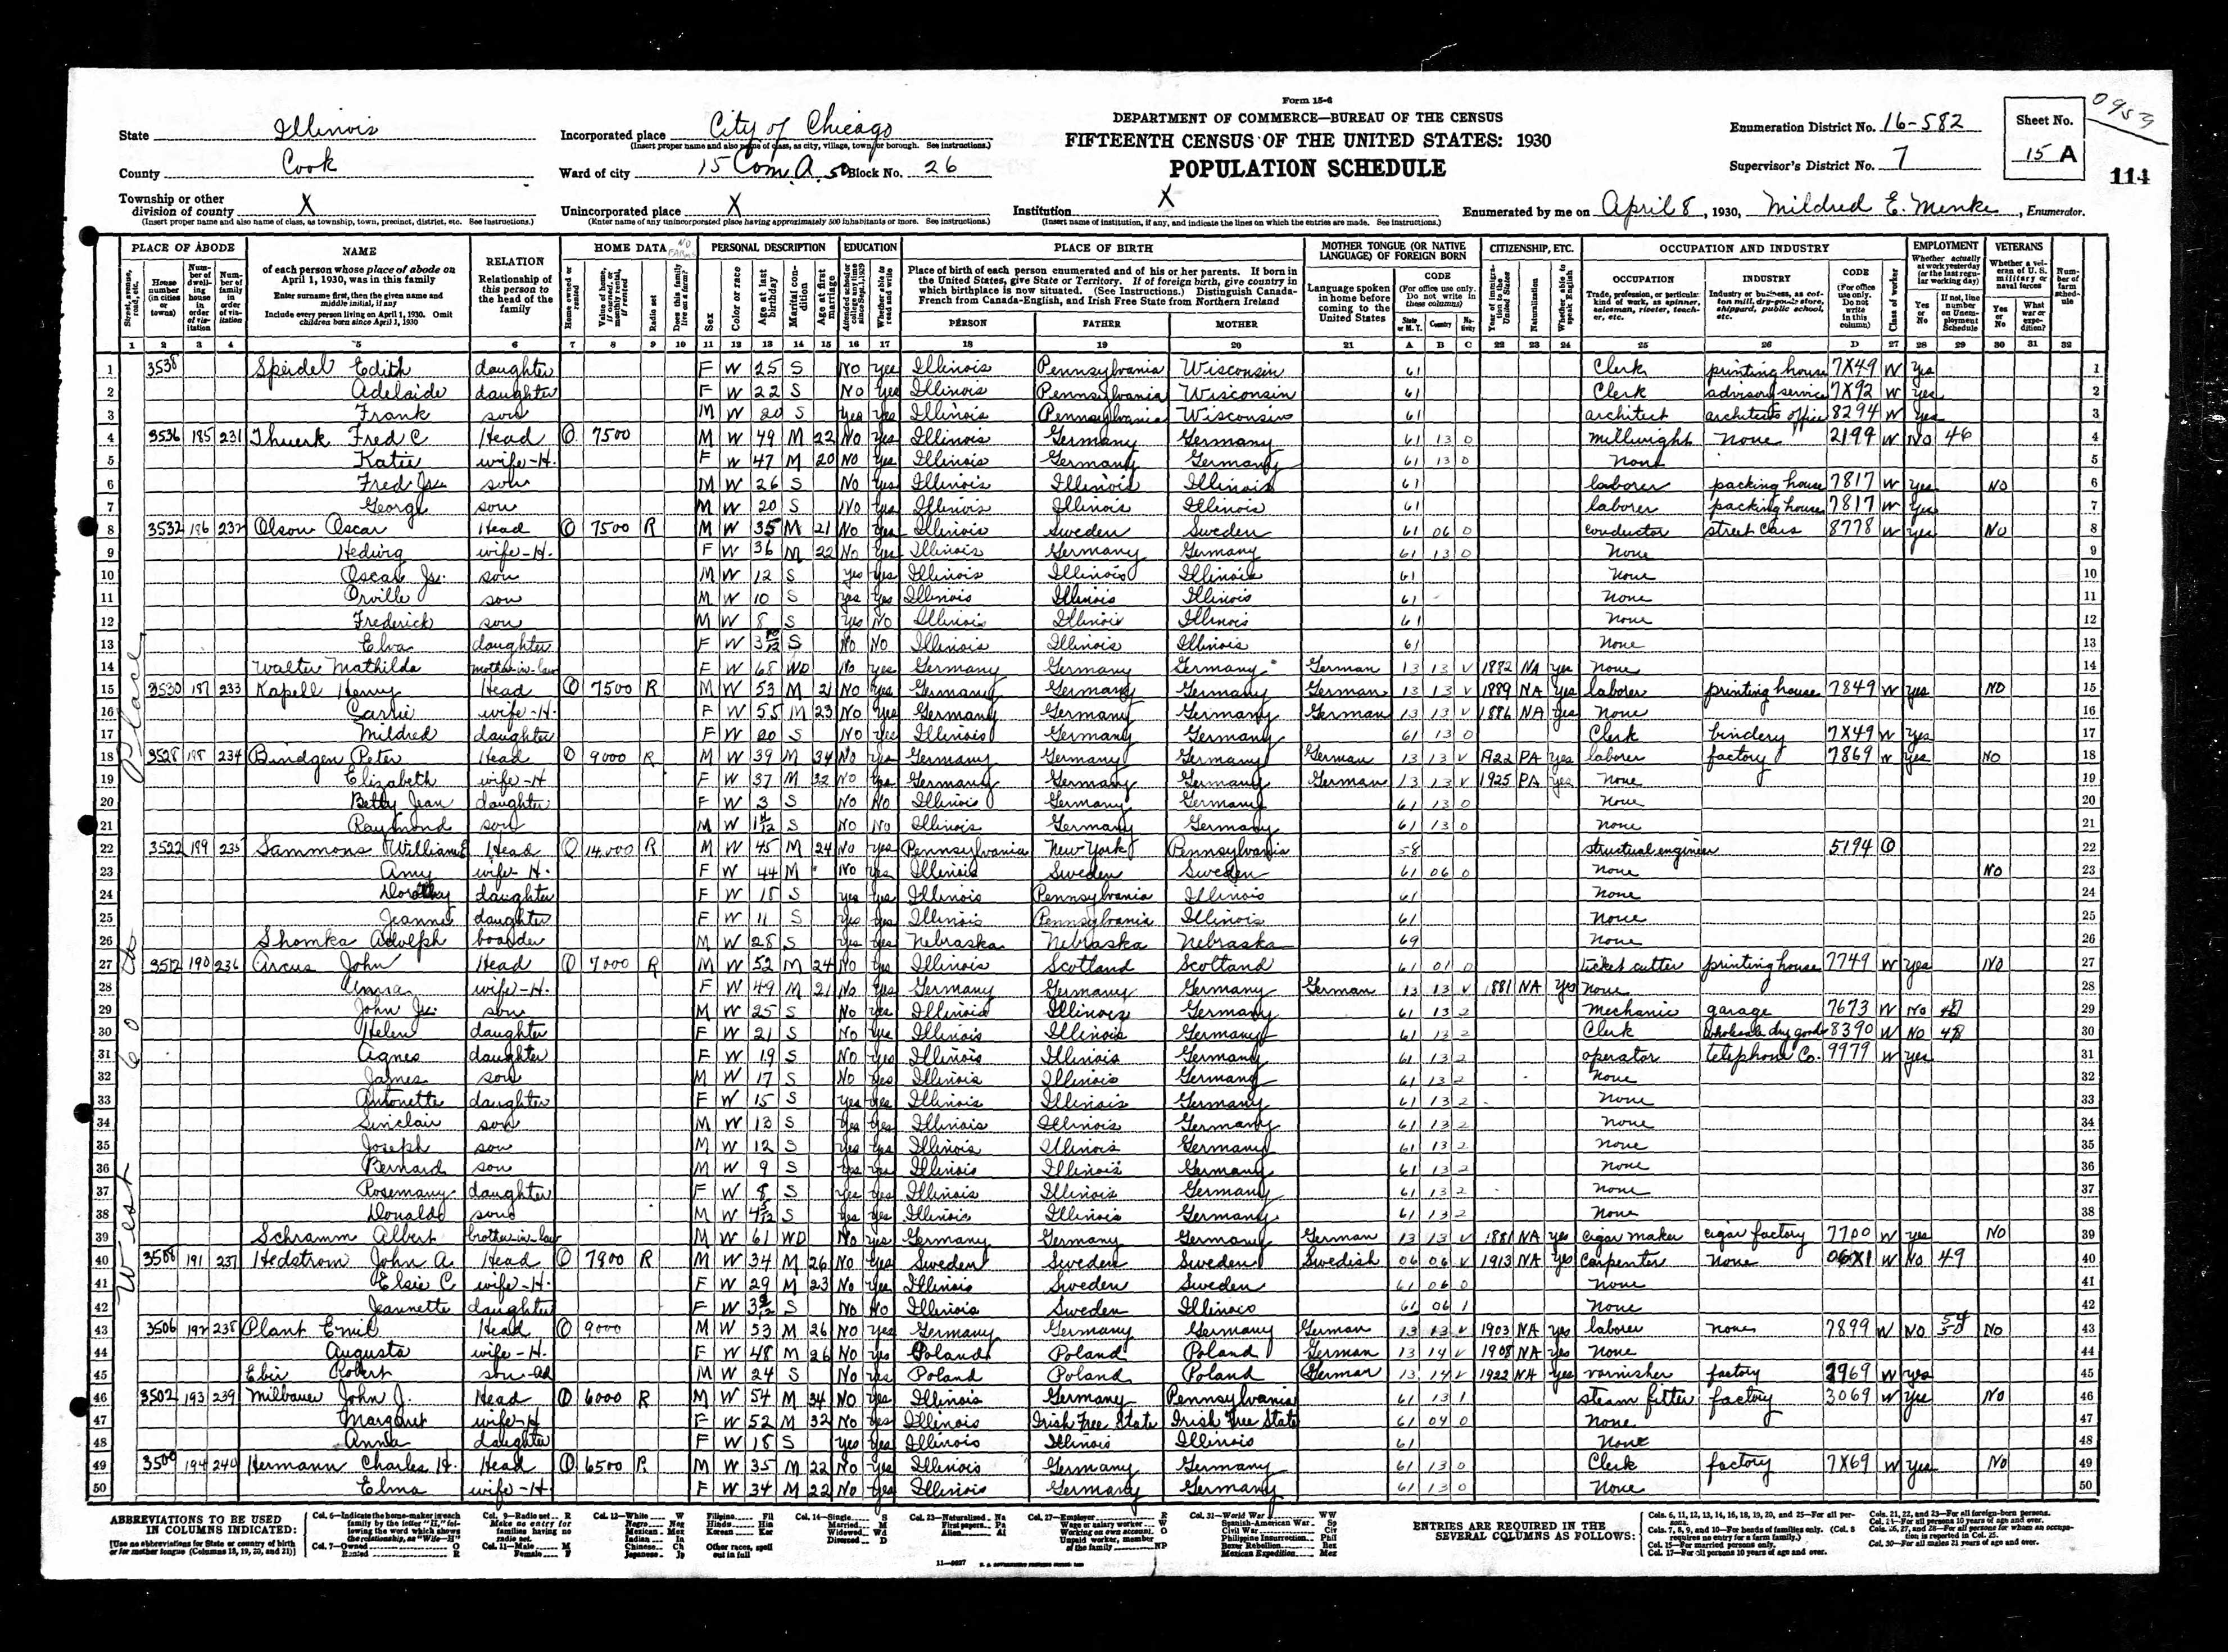 Form 15-6
0953
State Illinois
Incorporated place City of Chicago
(Insert proper name and also name of class, as city, village, town, or borough. See instructions.)
DEPARTMENT OF COMMERCE—BUREAU OF THE CENSUS
Enumeration District No. 16-582
Sheet No.
FIFTEENTH CENSUS OF THE UNITED STATES: 1930
County Cook
Ward of city 15 Com. A. 50 Block No. 26
POPULATION SCHEDULE
Supervisor's District No. 7
15 A
114
Township or other division of county X
(Insert proper name and also name of class, as township, town, precinct, district, etc. See instructions.)
Unincorporated place X
(Enter name of any unincorporated place having approximately 500 inhabitants or more. See instructions.)
Institution X
(Insert name of institution, if any, and indicate the lines on which the entries are made. See instructions.)
Enumerated by me on April 8, 1930, Mildred E. Menke, Enumerator.
PLACE OF ABODE NAME RELATION HOME DATA NO FARMS PERSONAL DESCRIPTION EDUCATION PLACE OF BIRTH MOTHER TONGUE (OR NATIVE LANGUAGE) OF FOREIGN BORN CITIZENSHIP, ETC. OCCUPATION AND INDUSTRY EMPLOYMENT VETERANS
1 2 3 4 5 6 7 8 9 10 11 12 13 14 15 16 17 18 19 20 21 A B C 22 23 24 25 26 D 27 28 29 30 31 32
West 60 Place
1 3538 Speidel Edith daughter F W 25 S No Yes Illinois Pennsylvania Wisconsin 61 Clerk printing house 7X49 W Yes 1
2 Adelaide daughter F W 22 S No Yes Illinois Pennsylvania Wisconsin 61 Clerk advisory service 7X92 W Yes 2
3 Frank son M W 20 S Yes Yes Illinois Pennsylvania Wisconsin 61 architect architects office 8294 W Yes 3
4 3536 185 231 Thuerk Fred C Head O 7500 M W 49 M 22 No Yes Illinois Germany Germany 61 13 0 millwright None 2199 W No 46 4
5 Katie wife-H. F W 47 M 20 No Yes Illinois Germany Germany 61 13 0 None 5
6 Fred Jr. son M W 26 S No Yes Illinois Illinois Illinois 61 laborer packing house 7817 W Yes No 6
7 George son M W 20 S No Yes Illinois Illinois Illinois 61 laborer packing house 7817 W Yes 7
8 3532 186 232 Olson Oscar Head O 7500 R M W 35 M 21 No Yes Illinois Sweden Sweden 61 06 0 conductor street cars 8778 W Yes No 8
9 Hedwig wife-H. F W 36 M 22 No Yes Illinois Germany Germany 61 13 0 None 9
10 Oscar Jr. son M W 12 S Yes Yes Illinois Illinois Illinois 61 None 10
11 Orville son M W 10 S Yes Yes Illinois Illinois Illinois 61 None 11
12 Frederick son M W 8 S Yes No Illinois Illinois Illinois 61 None 12
13 Elva daughter F W 3 10/12 S No No Illinois Illinois Illinois 61 None 13
14 Walter Mathilda mother-in-law F W 68 WD No Yes Germany Germany Germany German 13 13 V 1882 NA yes None 14
15 3530 187 233 Kapell Henry Head O 7500 R M W 53 M 21 No Yes Germany Germany Germany German 13 13 V 1889 NA Yes laborer printing house 7849 W Yes No 15
16 Carrie wife-H. F W 55 M 23 No Yes Germany Germany Germany German 13 13 V 1886 NA Yes None 16
17 Mildred daughter F W 20 S No Yes Illinois Germany Germany 61 13 0 Clerk bindery 7X49 W Yes 17
18 3528 188 234 Bindgen Peter Head O 9000 R M W 39 M 34 No Yes Germany Germany Germany German 13 13 V 1922 PA Yes laborer factory 7869 W Yes No 18
19 Elizabeth wife-H F W 37 M 32 No Yes Germany Germany Germany German 13 13 V 1925 PA Yes None 19
20 Betty Jean daughter F W 3 S No No Illinois Germany Germany 61 13 0 None 20
21 Raymond son M W 1 11/12 S No No Illinois Germany Germany 61 13 0 None 21
22 3522 189 235 Sammons William E Head O 14,000 R M W 45 M 24 No Yes Pennsylvania New York Pennsylvania 58 structual engineer 5194 O 22
23 Amy wife-H. F W 44 M No Yes Illinois Sweden Sweden 61 06 0 None No 23
24 Dorothy daughter F W 18 S Yes Yes Illinois Pennsylvania Illinois 61 None 24
25 Jeanne daughter F W 11 S Yes Yes Illinois Pennsylvania Illinois 61 None 25
26 Shomka Adolph boarder M W 28 S Yes Yes Nebraska Nebraska Nebraska 69 None 26
27 3512 190 236 Arcus John Head O 7000 R M W 52 M 24 No Yes Illinois Scotland Scotland 61 01 0 ticket cutter printing house 7749 W Yes No 27
28 Anna wife-H. F W 49 M 21 No Yes Germany Germany Germany German 13 13 V 1881 NA Yes None 28
29 John Jr. son M W 25 S No Yes Illinois Illinois Germany 61 13 2 mechanic garage 7673 W No 29
30 Helen daughter F W 21 S No Yes Illinois Illinois Germany 61 13 2 Clerk wholesale dry goods 8390 W No 48 30
31 Agnes daughter F W 19 S No Yes Illinois Illinois Germany 61 13 2 operator telephone Co. 9979 W yes 31
32 James son M W 17 S No Yes Illinois Illinois Germany 61 13 2 None 32
33 Antonette daughter F W 15 S Yes Yes Illinois Illinois Germany 61 13 2 None 33
34 Sinclair son M W 13 S Yes Yes Illinois Illinois Germany 61 13 2 None 34
35 Joseph son M W 12 S Yes Yes Illinois Illinois Germany 61 13 2 None 35
36 Bernard son M W 9 S Yes Yes Illinois Illinois Germany 61 13 2 None 36
37 Rosemary daughter F W 8 S Yes Yes Illinois Illinois Germany 61 13 2 None 37
38 Donald son M W S Yes Yes Illinois Illinois Germany 61 13 2 None 38
39 Schramm Albert brother-in-law M W 61 WD No Yes Germany Germany Germany German 13 13 V 1881 NA yes cigar maker cigar factory 7700 W yes No 39
40 3508 191 237 Hedstrom John A. Head O 7800 R M W 34 M 26 No Yes Sweden Sweden Sweden Swedish 06 06 V 1913 NA Yes Carpenter None 06X1 W No 49 40
41 Elsie C wife-H. F W 29 M 23 No Yes Illinois Sweden Sweden 61 06 0 None 41
42 Jeannette daughter F W S No No Illinois Sweden Illinois 61 06 1 None 42
43 3506 192 238 Plant Emil Head O 9000 M W 53 M 26 No Yes Germany Germany Germany German 13 13 V 1903 NA yes laborer None 7899 W No No 43
44 Augusta wife-H. F W 48 M 26 No Yes Poland Poland Poland German 13 14 V 1908 NA yes None 44
45 Ebir Robert son-ad M W 24 S No Yes Poland Poland Poland German 13 14 V 1922 NA Yes varnisher factory 7969 W yes 45
46 3502 193 239 Milbauer John J. Head O 6000 R M W 54 M 34 No Yes Illinois Germany Pennsylvania 61 13 1 steam fitter factory 3069 W Yes No 46
47 Margaret wife-H F W 52 M 32 No Yes Illinois Irish Free State Irish Free State 61 04 0 None 47
48 Anna daughter F W 18 S Yes Yes Illinois Illinois Illinois 61 None 48
49 3500 194 240 Hermann Charles H. Head O 6500 R M W 35 M 22 No Yes Illinois Germany Germany 61 13 0 Clerk factory 7X69 W Yes No 49
50 Elma wife-H F W 34 M 22 No Yes Illinois Germany Germany 61 13 0 None 50
ABBREVIATIONS TO BE USED IN COLUMNS INDICATED:
[Use no abbreviations for State or country of birth or for mother tongue (Columns 18, 19, 20, and 21)]
ENTRIES ARE REQUIRED IN THE SEVERAL COLUMNS AS FOLLOWS: